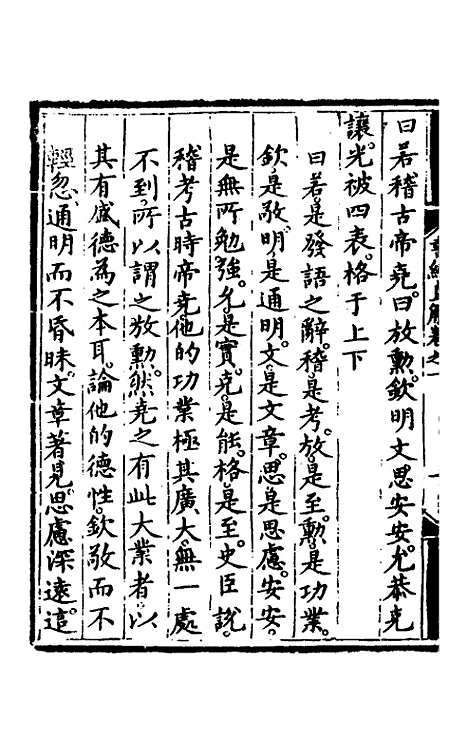 曰若稽古帝堯。曰放勳。欽明文思安安。允恭克
讓。光被四表。格于上下
曰若。是發語之辭。稽是考。放是至。勳是功業。
欽是敬。明是通明。文是文章。思是思慮。安安。
是無所勉強。允是實。克是能。格是至。史臣說。
稽考古時帝堯。他的功業極其廣大。無一處
不到。所以謂之放勳。然堯之有此大業者。以
其有盛德為之本耳。論他的德性。欽敬而不
輕忽。通明而不昏昧。文章著見。思慮深遠。這
書經直解卷之一
一